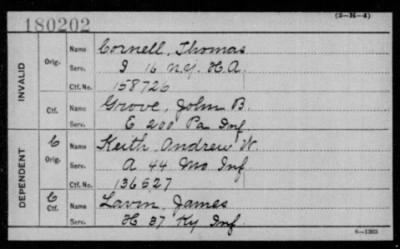 180202 (3-H-4)
INVALID Orig. Name Cornell, Thomas
Serv. I 16 N.Y. H.A.
Ctf. No. 158726
Ctf. Name Grove, John B.
Serv. E 200 Pa Inf
DEPENDENT C Orig. Name Keith, Andrew W.
Serv. A 44 Mo Inf
Ctf. No. 136527
C Ctf. Name Lavin, James
Serv. H 37 Ky Inf